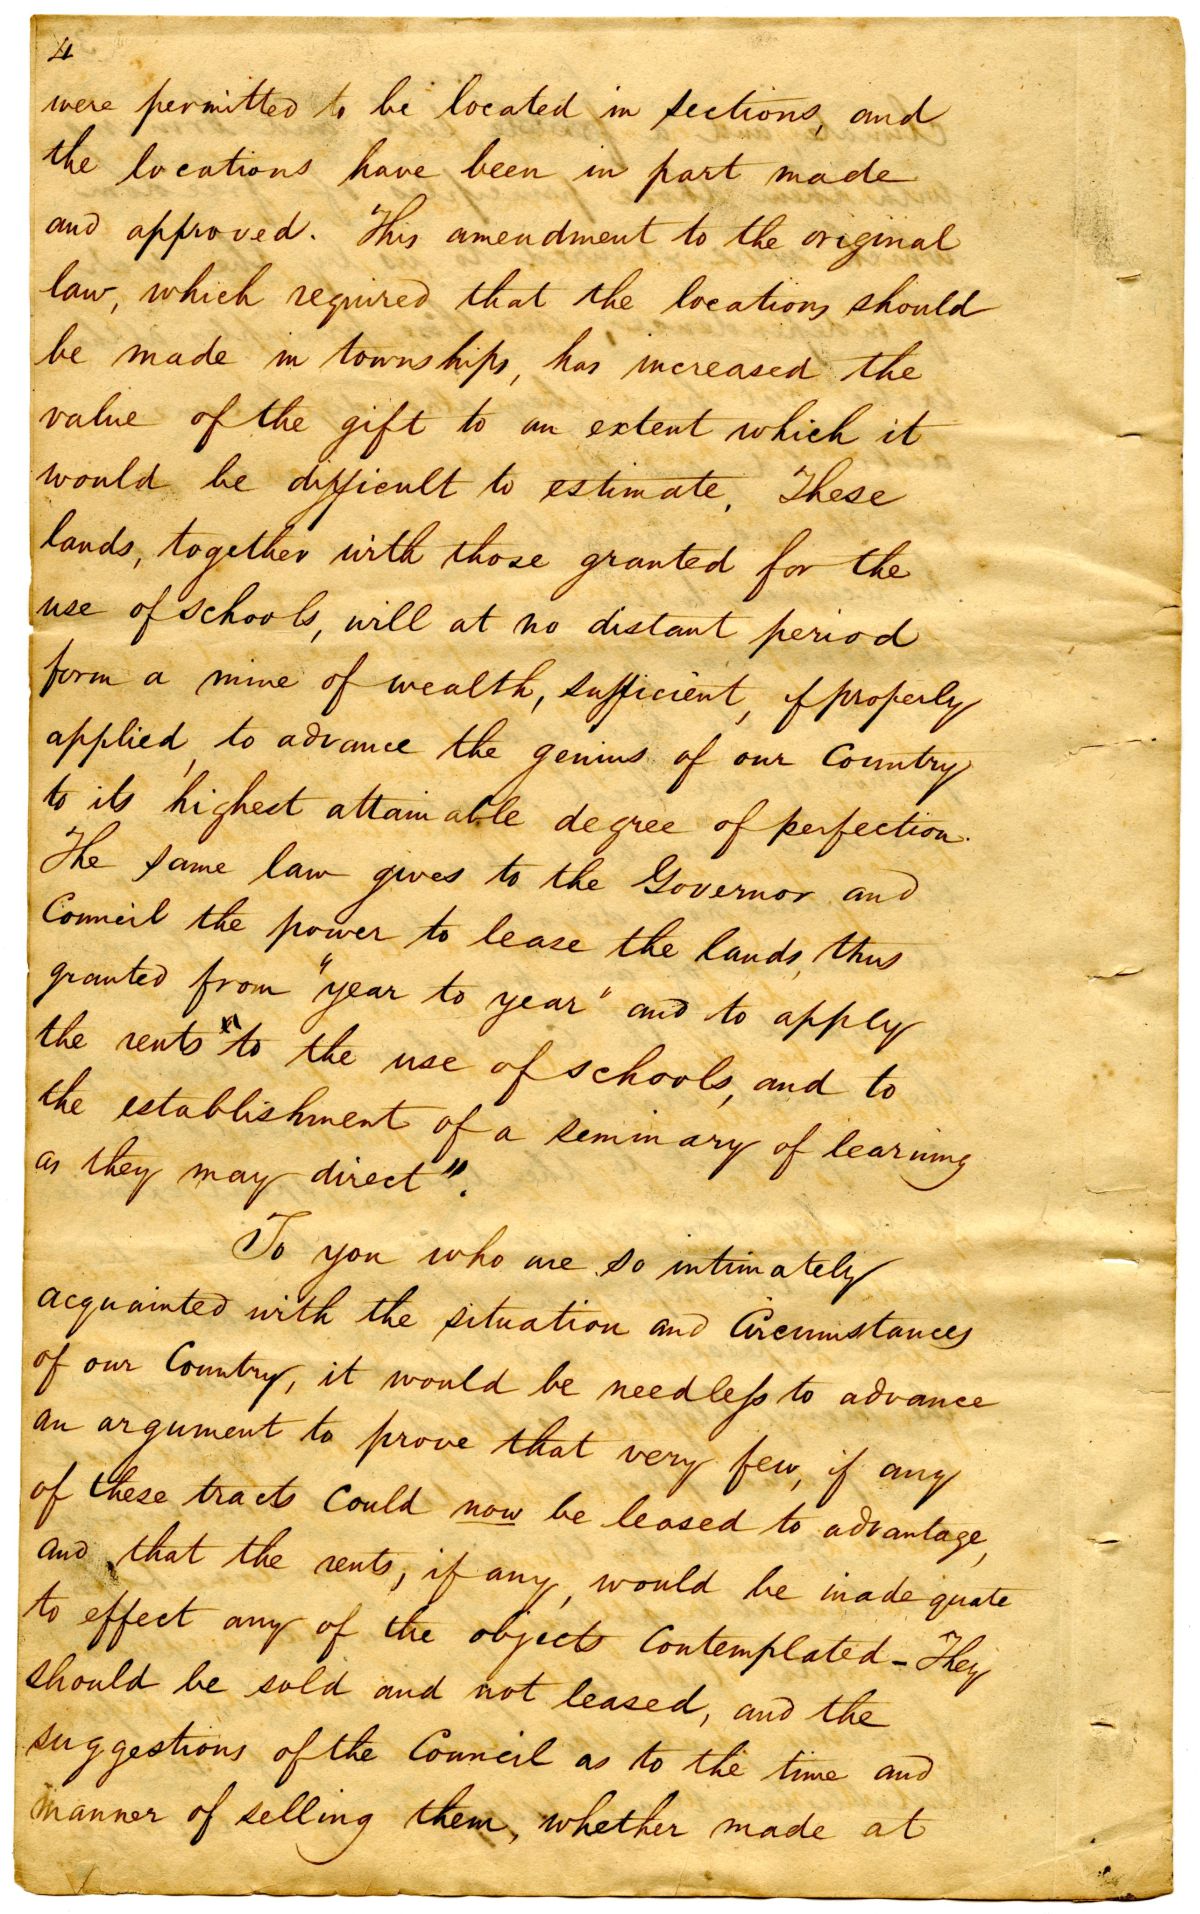 4
were permitted to be located in sections, and
the locations have been in part made
and approved. This amendment to the original
law, which required that the locations should
be made in townships, has increased the
value of the gift to an extent which it
would be difficult to estimate. These
lands, together with those granted for the
use of schools, will at no distant period
form a mine of wealth, sufficient, if properly
applied, to advance the genius of our Country
to its highest attainable degree of perfection.
The same law gives to the Governor and
Council the power to lease the lands, thus
granted from "year to year" and to apply
the rents "to the use of schools, and to
the establishment of a seminary of learning
as they may direct".
To you who are so intimately
acquainted with the situation and Circumstances
of our Country, it would be needless to advance
an argument to prove that very few, if any
of these tracts Could now be leased to advantage,
and that the rents, if any, would be inadequate
to effect any of the objects Contemplated - They
should be sold and not leased, and the
suggestions of the Council as to the time and
manner of selling them, whether made at